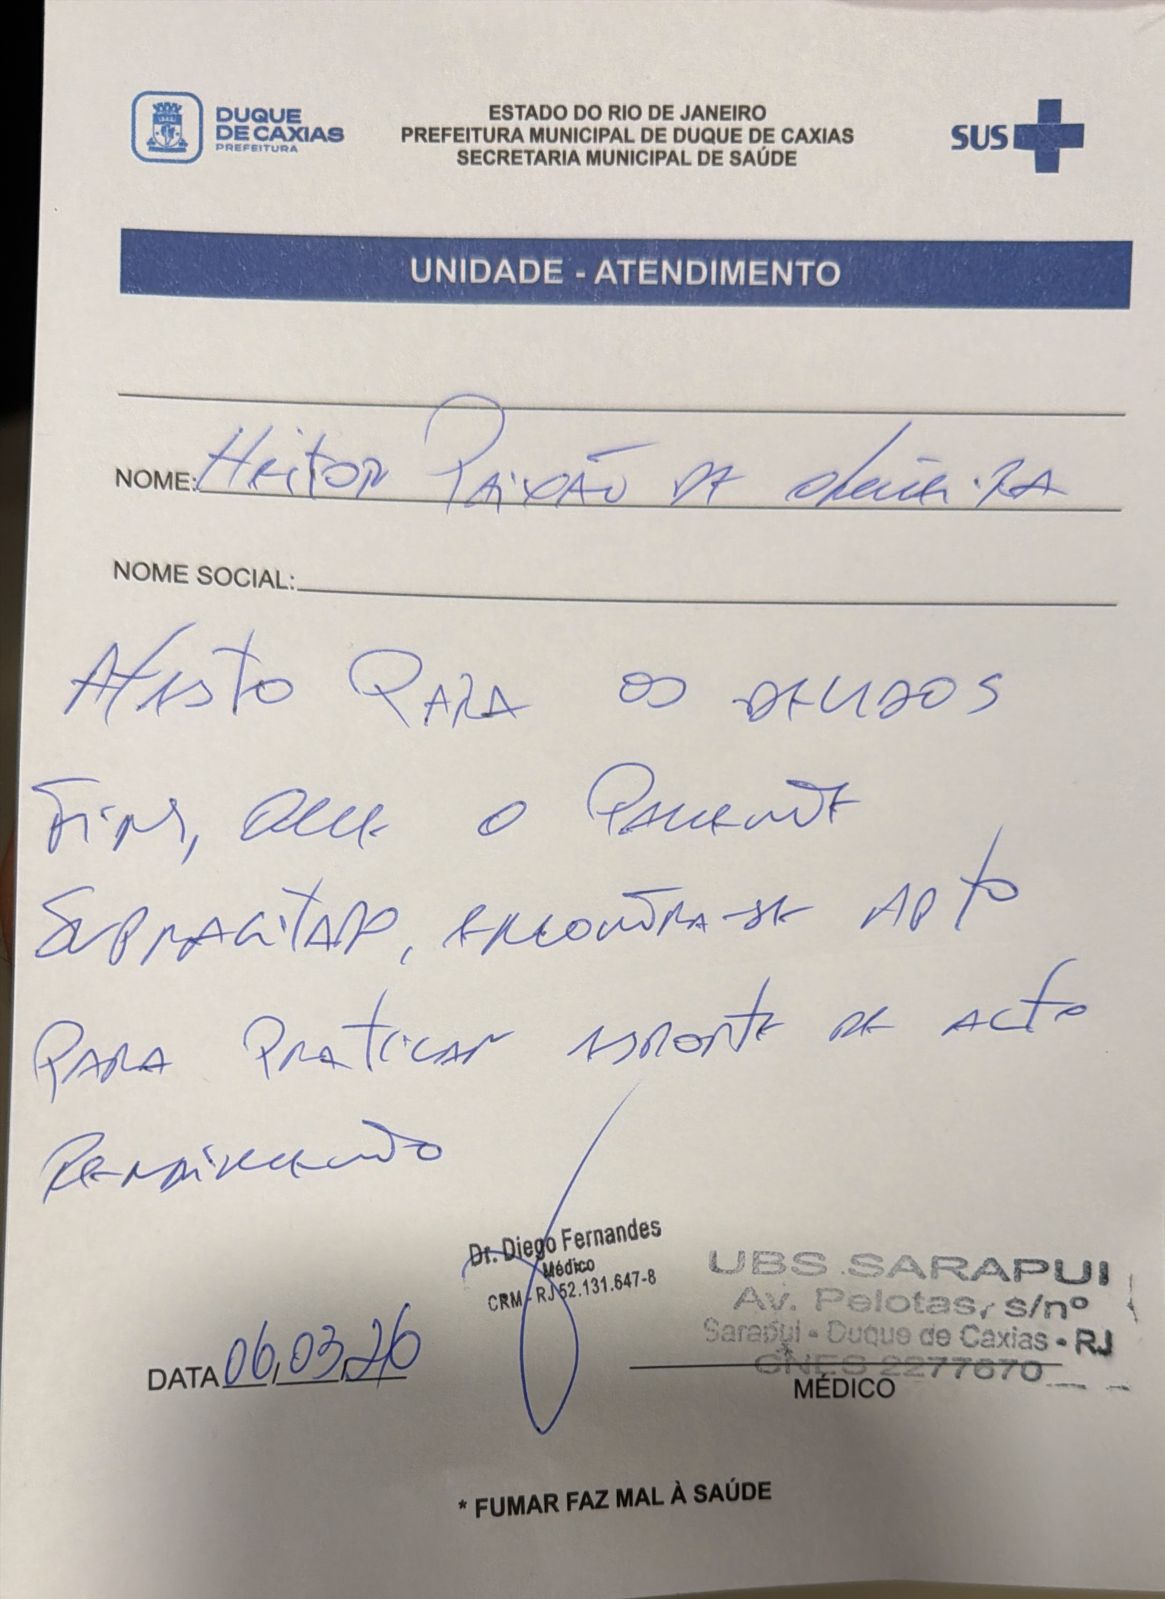 DUQUE
DE CAXIAS
PREFEITURA
ESTADO DO RIO DE JANEIRO
PREFEITURA MUNICIPAL DE DUQUE DE CAXIAS
SECRETARIA MUNICIPAL DE SAÚDE
SUS
UNIDADE - ATENDIMENTO
NOME: Heitor Paixão de Oliveira
NOME SOCIAL:
Atesto para os devidos
fins, que o paciente
supracitado, encontra-se apto
para praticar esporte de alto
rendimento
Dr. Diego Fernandes
Médico
CRM - RJ 52.131.647-8
UBS SARAPUI
Av. Pelotas, s/nº
Sarapuí - Duque de Caxias - RJ
CNES 2277670
DATA 06,03,26
MÉDICO
* FUMAR FAZ MAL À SAÚDE